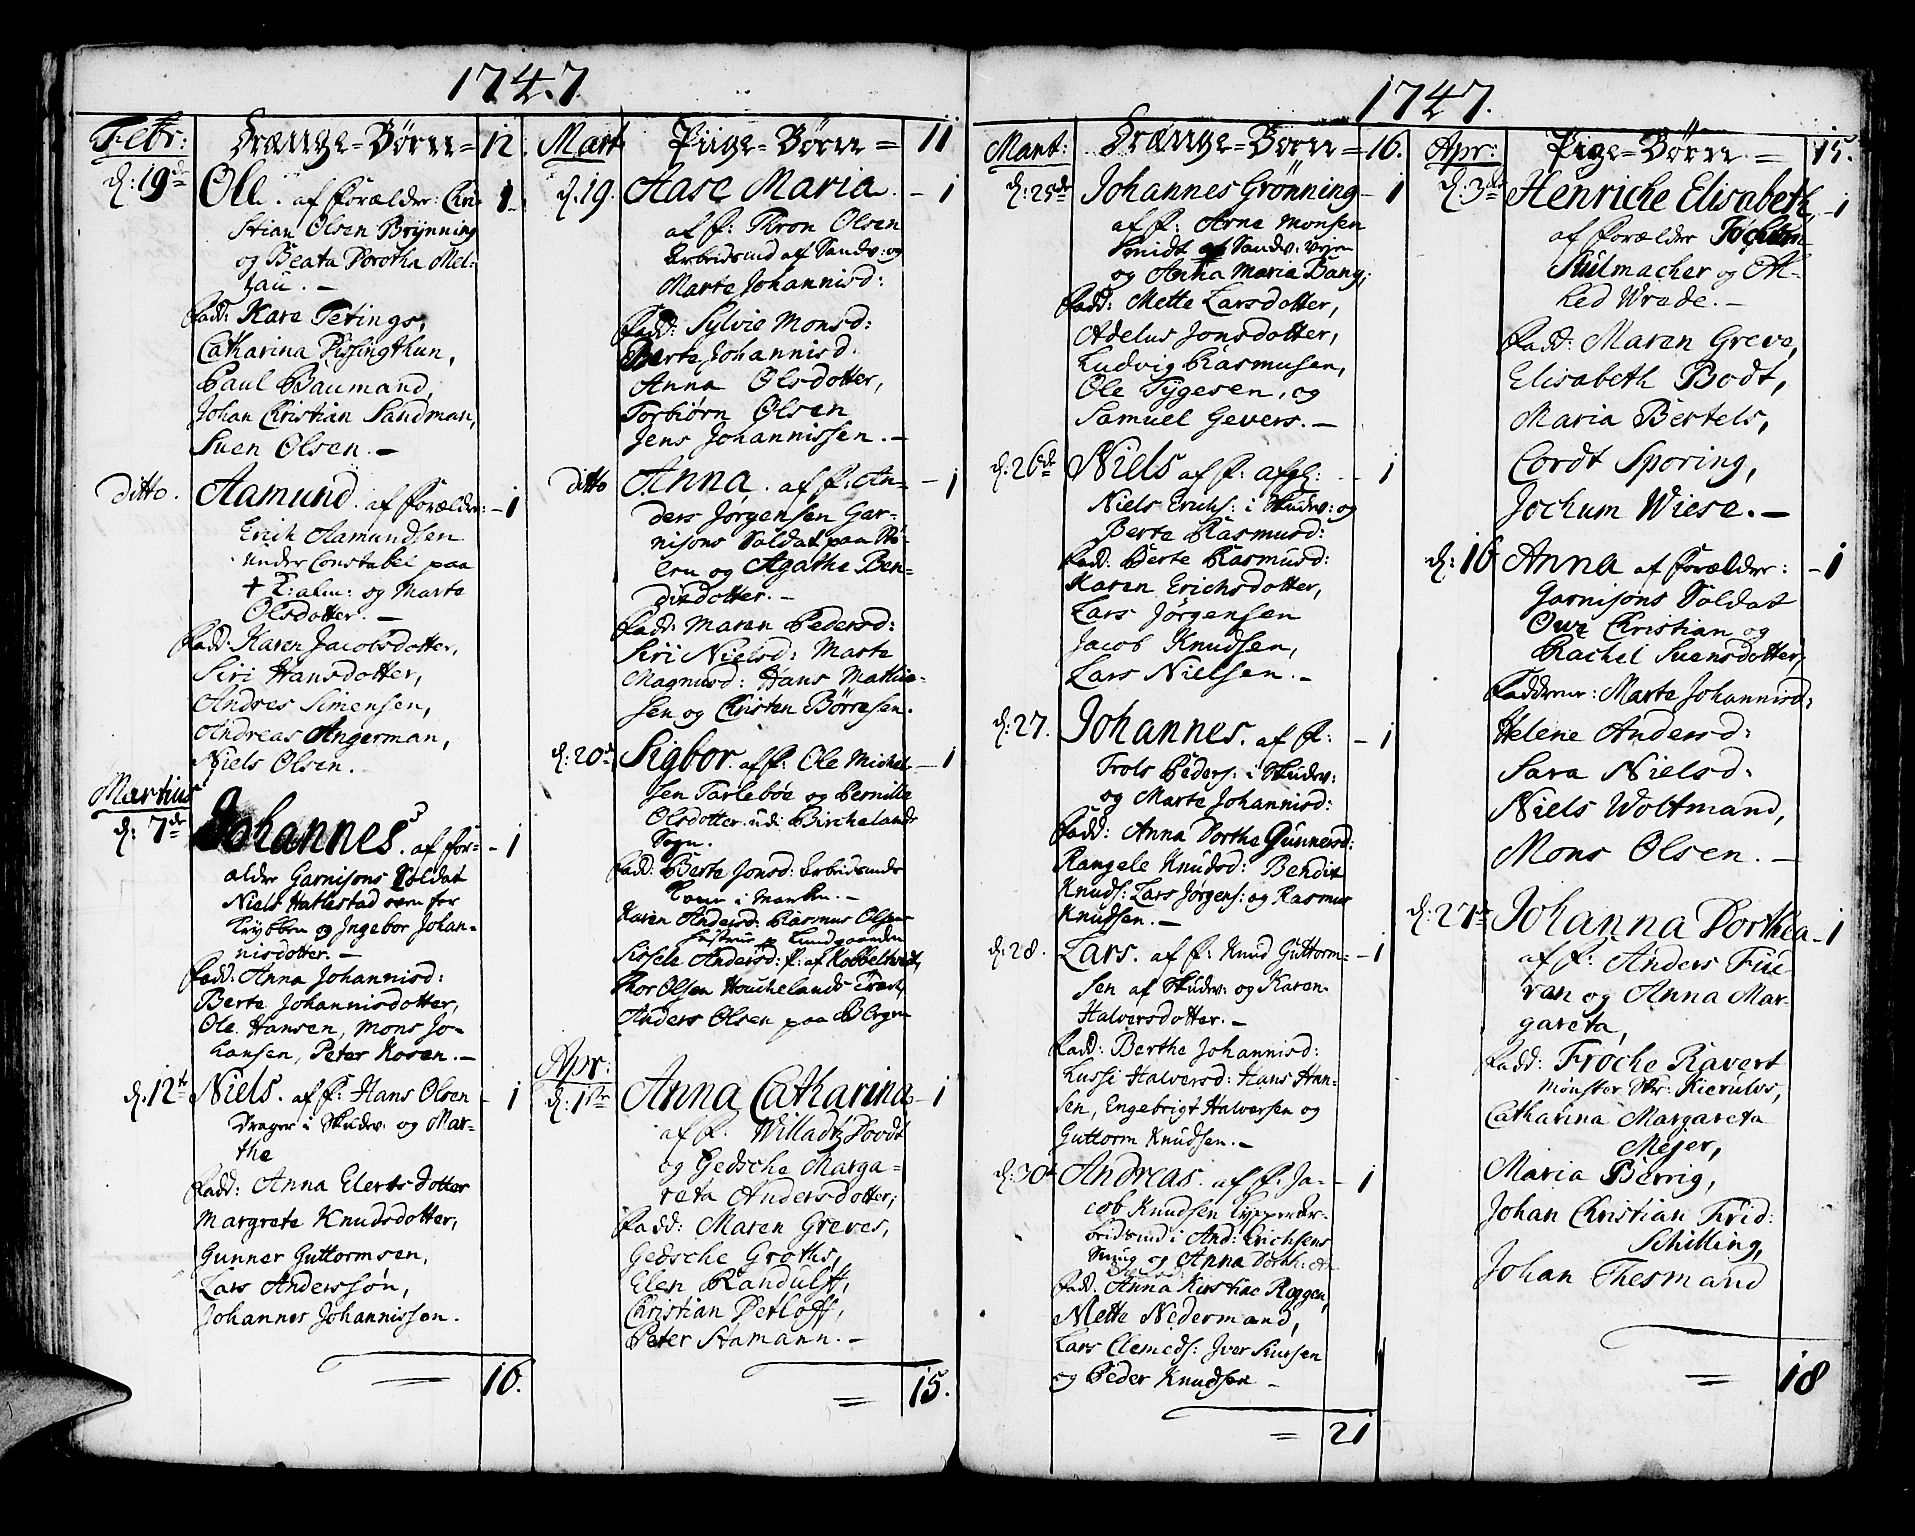 1747
Febr: Drænge-Børn= 12.
d: 19de Ole. af Forælder: Chri- 1
stian Olsen Brynning
og Beata Dorotha Mel-
tzau. -
Fadd: Kare Terings,
Catharina Pissingthun,
Paul Baumand,
Johan Christian Sandman,
Suen Olsen. -
Ditto. Aamund. af Forælder: - 1
Erich Aamundsen
Under Constabel paa
og Marta
Olsdotter. -
Fadd: Karen Jacobsdotter,
Siri Hansdotter,
Andres Simensen,
Andreas Angerman,
Niels Olsen.
Martius
d: 7de Johannes. af For- - 1
ældre Garnisons Soldat
Niels Hatlestad
og Ingebor Johan-
nisdotter. -
Fadd: Anna Johannisd:
Berte Johannisdotter,
Ole Hansen, Mons Jo-
hansen, Peter Kosen. -
d: 12te Niels. af F: Hans Olsen - 1
Drager i Skudev: og Mar-
the
Fadd: Anna Elertsdotter
Margrete Knudsdotter,
Gunner Guttormsen,
Lars Andersson,
Johannes Johannissen.
= 16.
Mart Piige-Børn = 11
d: 19. Aase Maria. - 1
af F: Thron Olsen
Arbeidsmd af Sandv: og
Marte Johannisd:
Fadd: Sylvie Monsd:
Berte Johannisd.
Anna Olsdotter,
Torbiørn Olsen
Jens Johannissen. -
Ditto Anna. af F: An- - 1
ders Jørgensen Gar-
nisons Soldat paa
og Agathe Ben-
dixdotter. -
Fadd: Maren Pedersd:
Siri Nielsd: Marte
Magnusd: Hans Mathia-
sen og Christen Børresen.
d: 20de Sigbor. af F: Ole Michel- - 1
sen Tarlebøe og Pernille
Olsdotter. udi Birchelands
Sogn.
Fadd: Berte Jonsd: Arbeidsmds
Kone i Marken. -
Karen Andersd: Rasmus Olsens
Sissele Andersd: F: af Kobbeltvet,
Thor Olsen Houchelands Træet,
Anders Olsen paa
Apr:
d: 1ste Anna Catharina - 1
af F. Willadtz Poodt
og Gedsche Marga-
reta Andersdotter;
Fadd: Maren Greves,
Gedsche Groths,
Elen Randulff,
Christian Detloff,
Peter Hamann. -
= 15.
1747.
Mart: Drænge-Børn = 16.
d: 25de Johannes Grønning - 1
af F: Arne Monsen
Smidt af Sandv:
og Anna Maria Bang.
Fadd: Mette Larsdotter,
Adelus Jonsdotter,
Ludvig Rasmusen,
Ole Tygesen, og
Samuel Gevers. -
d: 26de Niels af F: afgl: - 1
Niels Erichs: i Skudev: og
Berte Rasmusd:
Fadd: Berte Rasmusd:
Karen Erichsdotter,
Lars Jørgensen
Jacob Knudsen,
Lars Nielsen. -
d: 27. Johannes. af F: - 1
Trols Peders: i Skudev:
og Marte Johannisd:
Fadd: Anna Dorthe Gunnersd:
Rangele Knudsd: Bendix
Knuds: Lars Jørgens: og Rasmus
Knudsen. -
d: 28. Lars. af F: Knud Guttorm- - 1
sen af Skudev: og Karen
Halversdotter. -
Fadd: Berthe Johannisd:
Lussi Halversd: Hans Han-
sen, Engebrigt Halversen og
Guttorm Knudsen. -
d: 30de Andreas. af F: Ja- - 1
cob Knudsen
i And: Erichsens
Smug og Anna Dorth:
Fadd. Anna Kirstine Roggen,
Mette Nedermand,
Lars Clemeds: Iver
og Peder Knudsen -
= 21
Apr: Pige-Børn = 15.
d: 3die Henriche Elisabeth, - 1
af Forælder Jochum
Stulmacher og Al-
hed Wrede. -
Fadd: Maren Greve,
Elisabeth Bodt,
Maria Bertels,
Cordt Sporing,
Jochum Wiese. -
d: 16 Anna af Forælder: - 1
Garnisons Soldat
Owe Christian og
Rachel Suensdotter,
Faddrene: Marte Johannisd:
Helene Andersd:
Sara Nielsd:
Niels Woltmand,
Mons Olsen. -
d: 27de Johanna Dorthea - 1
af F: Anders Fue
ran og Anna Mar-
gareta,
Fadd: Frøche Ravert
Mønster Skr: Kierulvs,
Catharina Margareta
Mejer,
Maria Berrig,
Johan Christian Frid:
Schilling,
Johan Thesmand
= 18